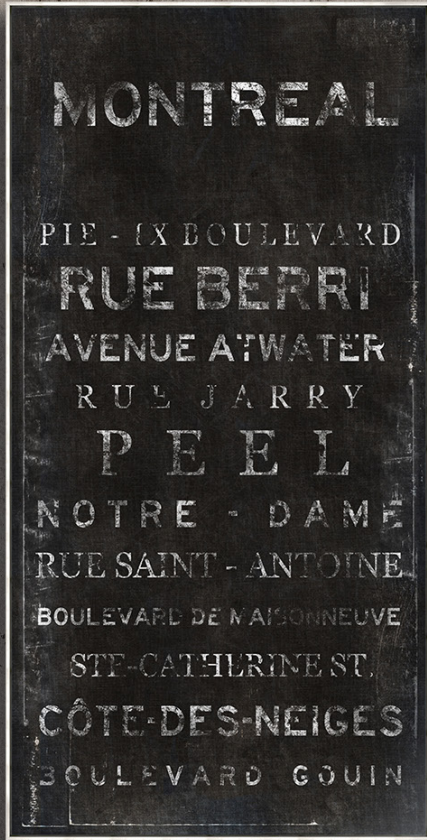 MONTREAL
PIE - IX BOULEVARD
RUE BERRI
AVENUE ATWATER
RUE JARRY
PEEL
NOTRE - DAME
RUE SAINT - ANTOINE
BOULEVARD DE MAISONNEUVE
STE-CATHERINE ST.
CÔTE-DES-NEIGES
BOULEVARD GOUIN